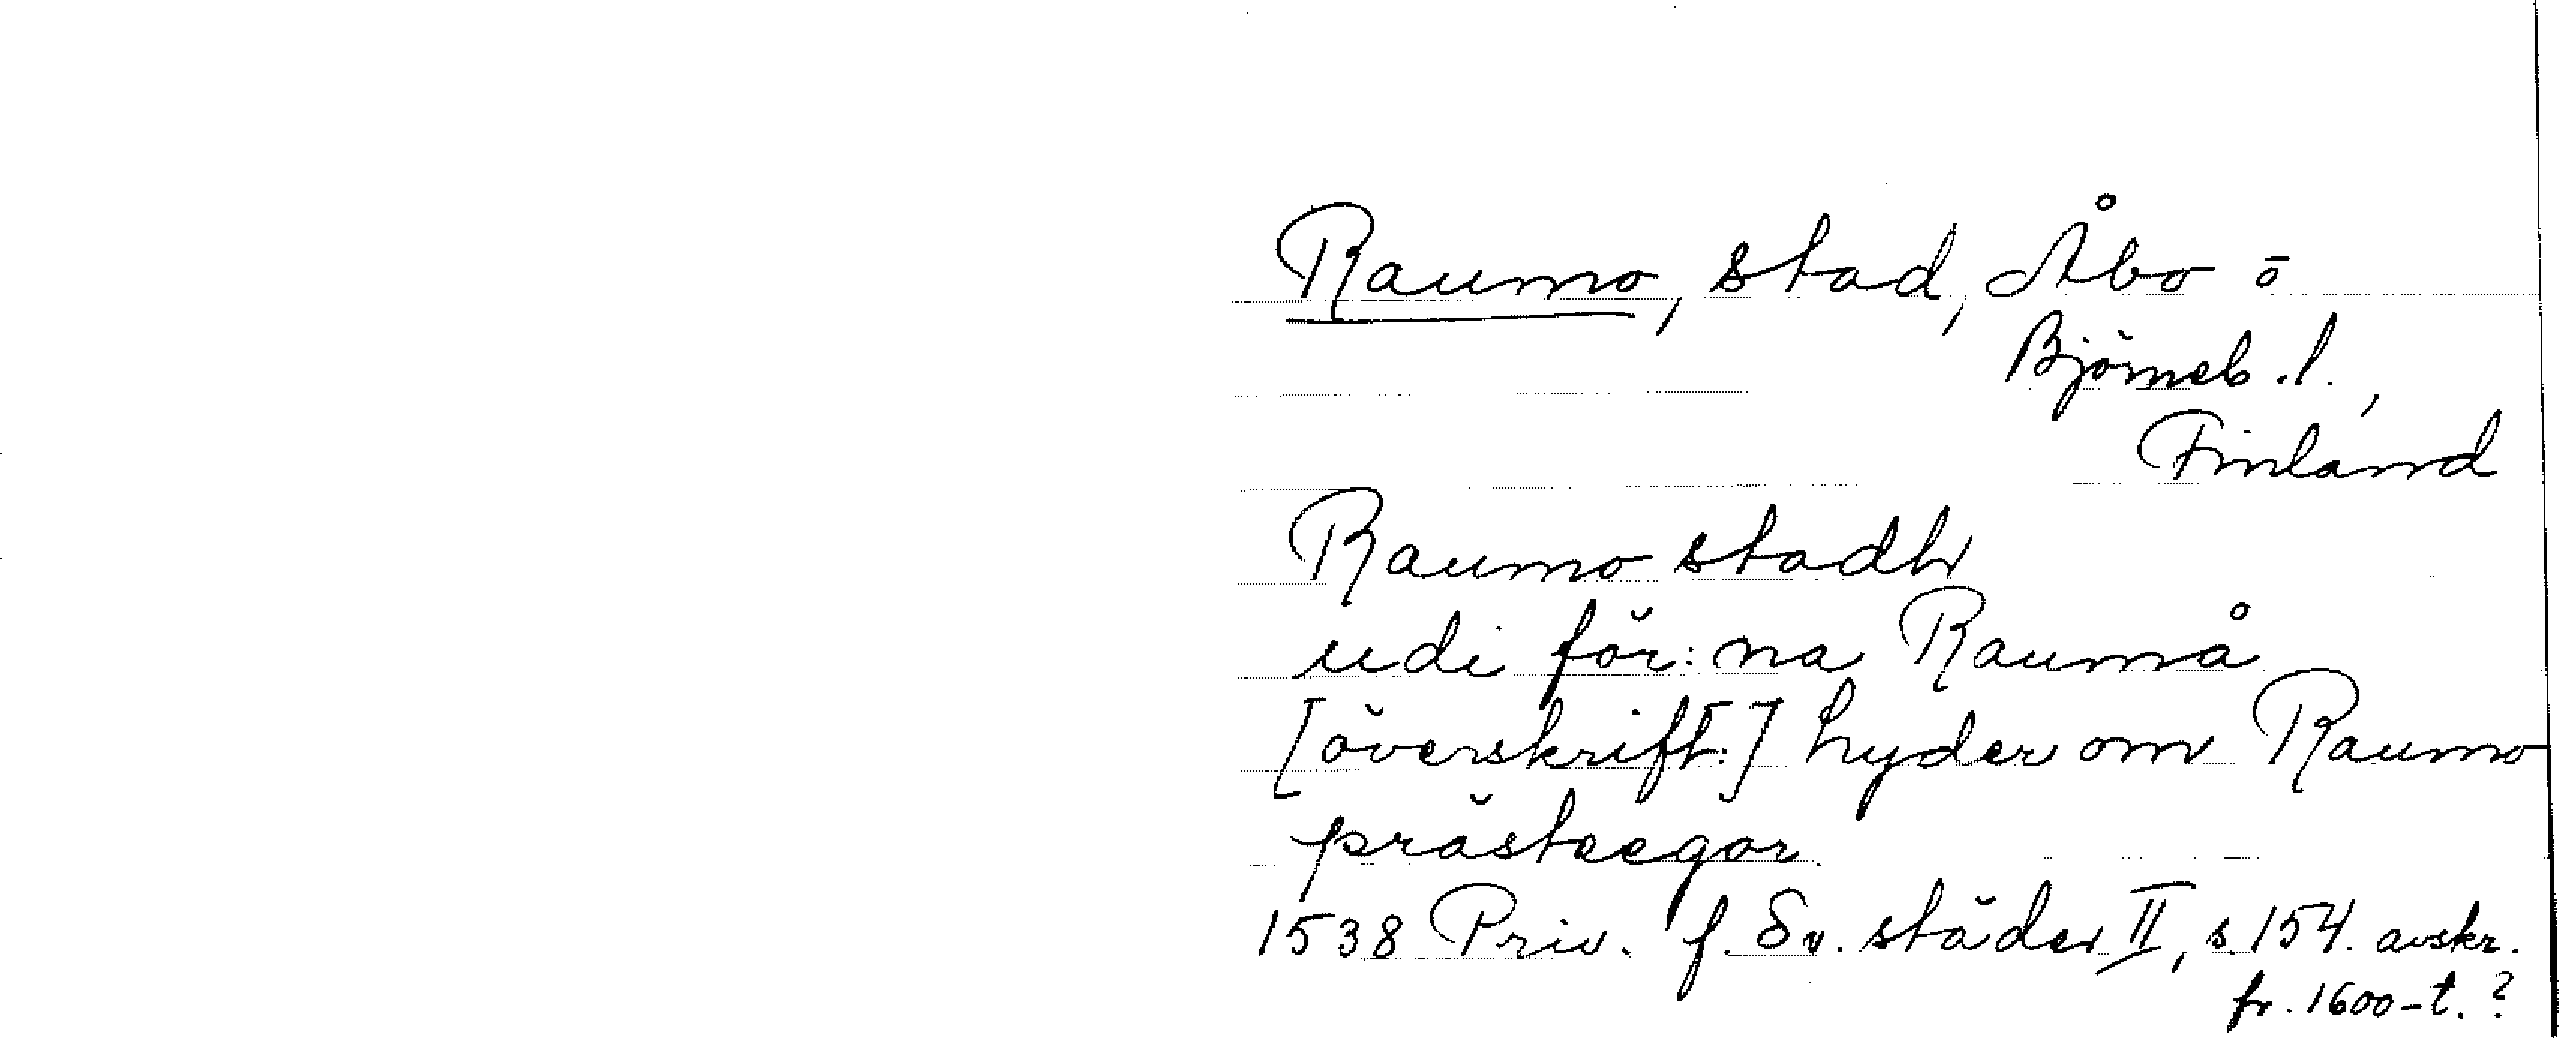 Raumo, stad, Åbo o
Björneb. l.,
Finland
Raumo stadh
udi för:na Raumå
[överskrift:] hyder om Raumo
prästeegor
1538 Priv. f. Sv. städer II, s. 154. avskr.
fr. 1600-t.?